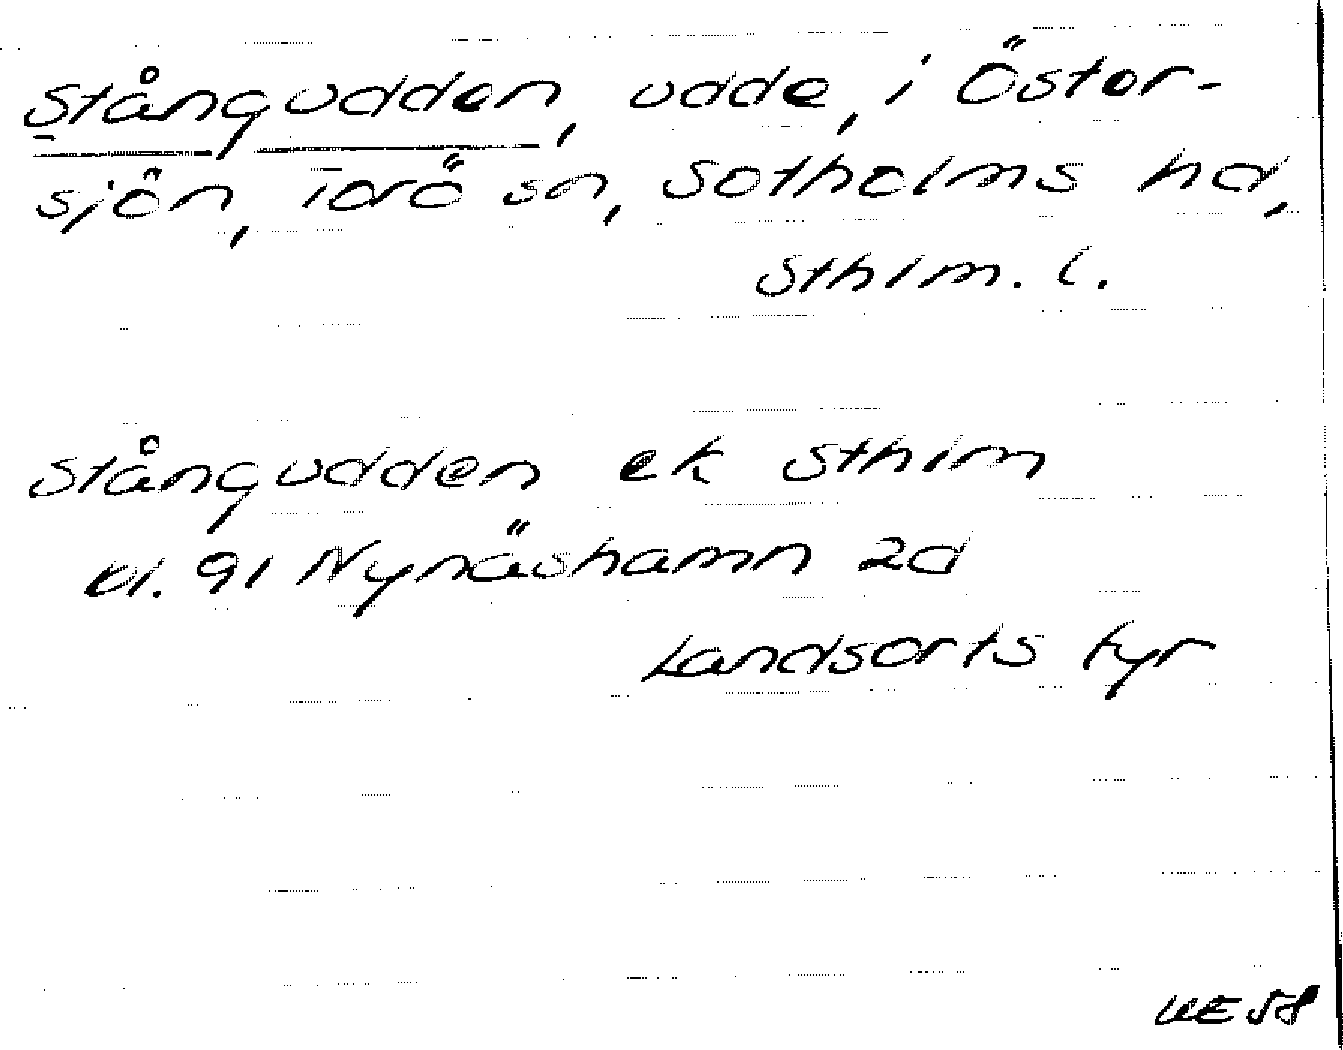 Stångudden, udde, i Öster-
sjön, Torö sn, Sotholms hd,
Sthlm. l.
Stångudden ek Sthlm
bl. 91 Nynäshamn 2d
Landsorts fyr
UE 58